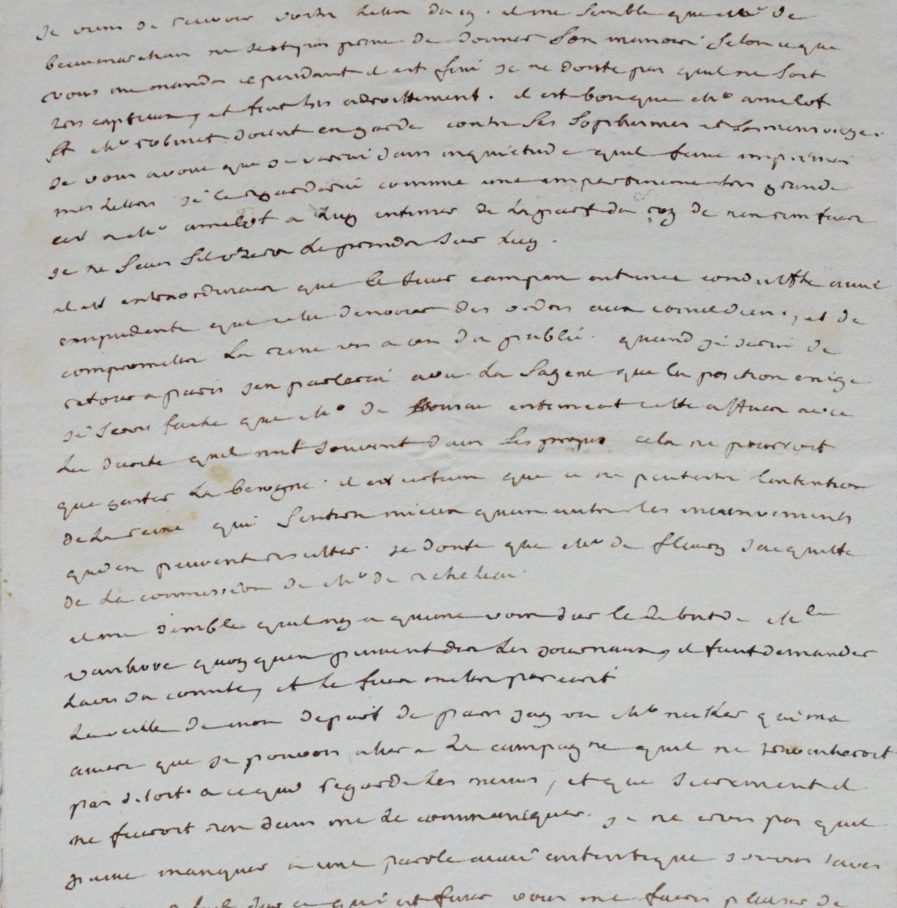 je viens de recevoir votre lettre du 9. il me semble que Mr de
beaumarchais ne sest pas presse de donner son memoire selon ce que
vous me mandez cependant il est fini je ne doute pas quil ne soit
tres captieux, et fait tres adroittement. il est bon que Mr amelot
et Mr robinet soient en garde contre ses sophismes et ses mensonges.
je vous avoue que je serai dans linquietude quil fasse imprimer
mes lettres je le regarderai comme une impertinence tres grande
car Mr amelot a luy intimer de la part du roy de nen rien faire
je ne scais sil osera le prendre sur luy.
il est extraordinaire que le sieur campan entame conduitte aussi
imprudente que celle denvoyer des ordres aux comediens, et de
compromettre la reine vis a vis du publié. quand je serai de
retour a paris jen parlerai avec la sagesse que la position exige
je serois faché que Mr de entamat cette affaire avec
la dureté quil met souvent dans ses propos cela ne pourroit
que gater la besogne. il est certain que ce ne peut etre lintention
de la reine qui sentira mieux quun autre les inconvenients
qui en peuvent resulter. je doute que Mr de fleury sacquitte
de la commission de Mr de richelieu.
il me semble quil ny a quune voix sur le debut de Mlle
vanhove quoy quen puissent dire les journaux, il faut demander
lavis du comité, et le faire mettre par ecrit
la veille de mon depart de paris jay vu Mr necker qui ma
assuré que je pouvois aller a la campagne quil ne toucheroit
pas sitot a ce qui regarde les menus, et que surement il
ne feroit rien sans me le communiquer. je ne crois pas quil
puisse manquer a une parole aussi autentique si vous savez
ce qui est faire vous me ferez plaisir de